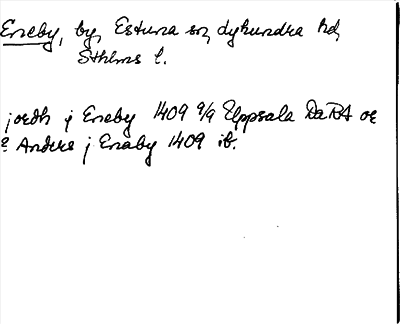 Eneby, by, Estuna sn, Lyhundra hd,
Sthlms l.
jordh j Eneby 1409 9/9 Uppsala DaRA or
Anders j Enaby 1409 ib.